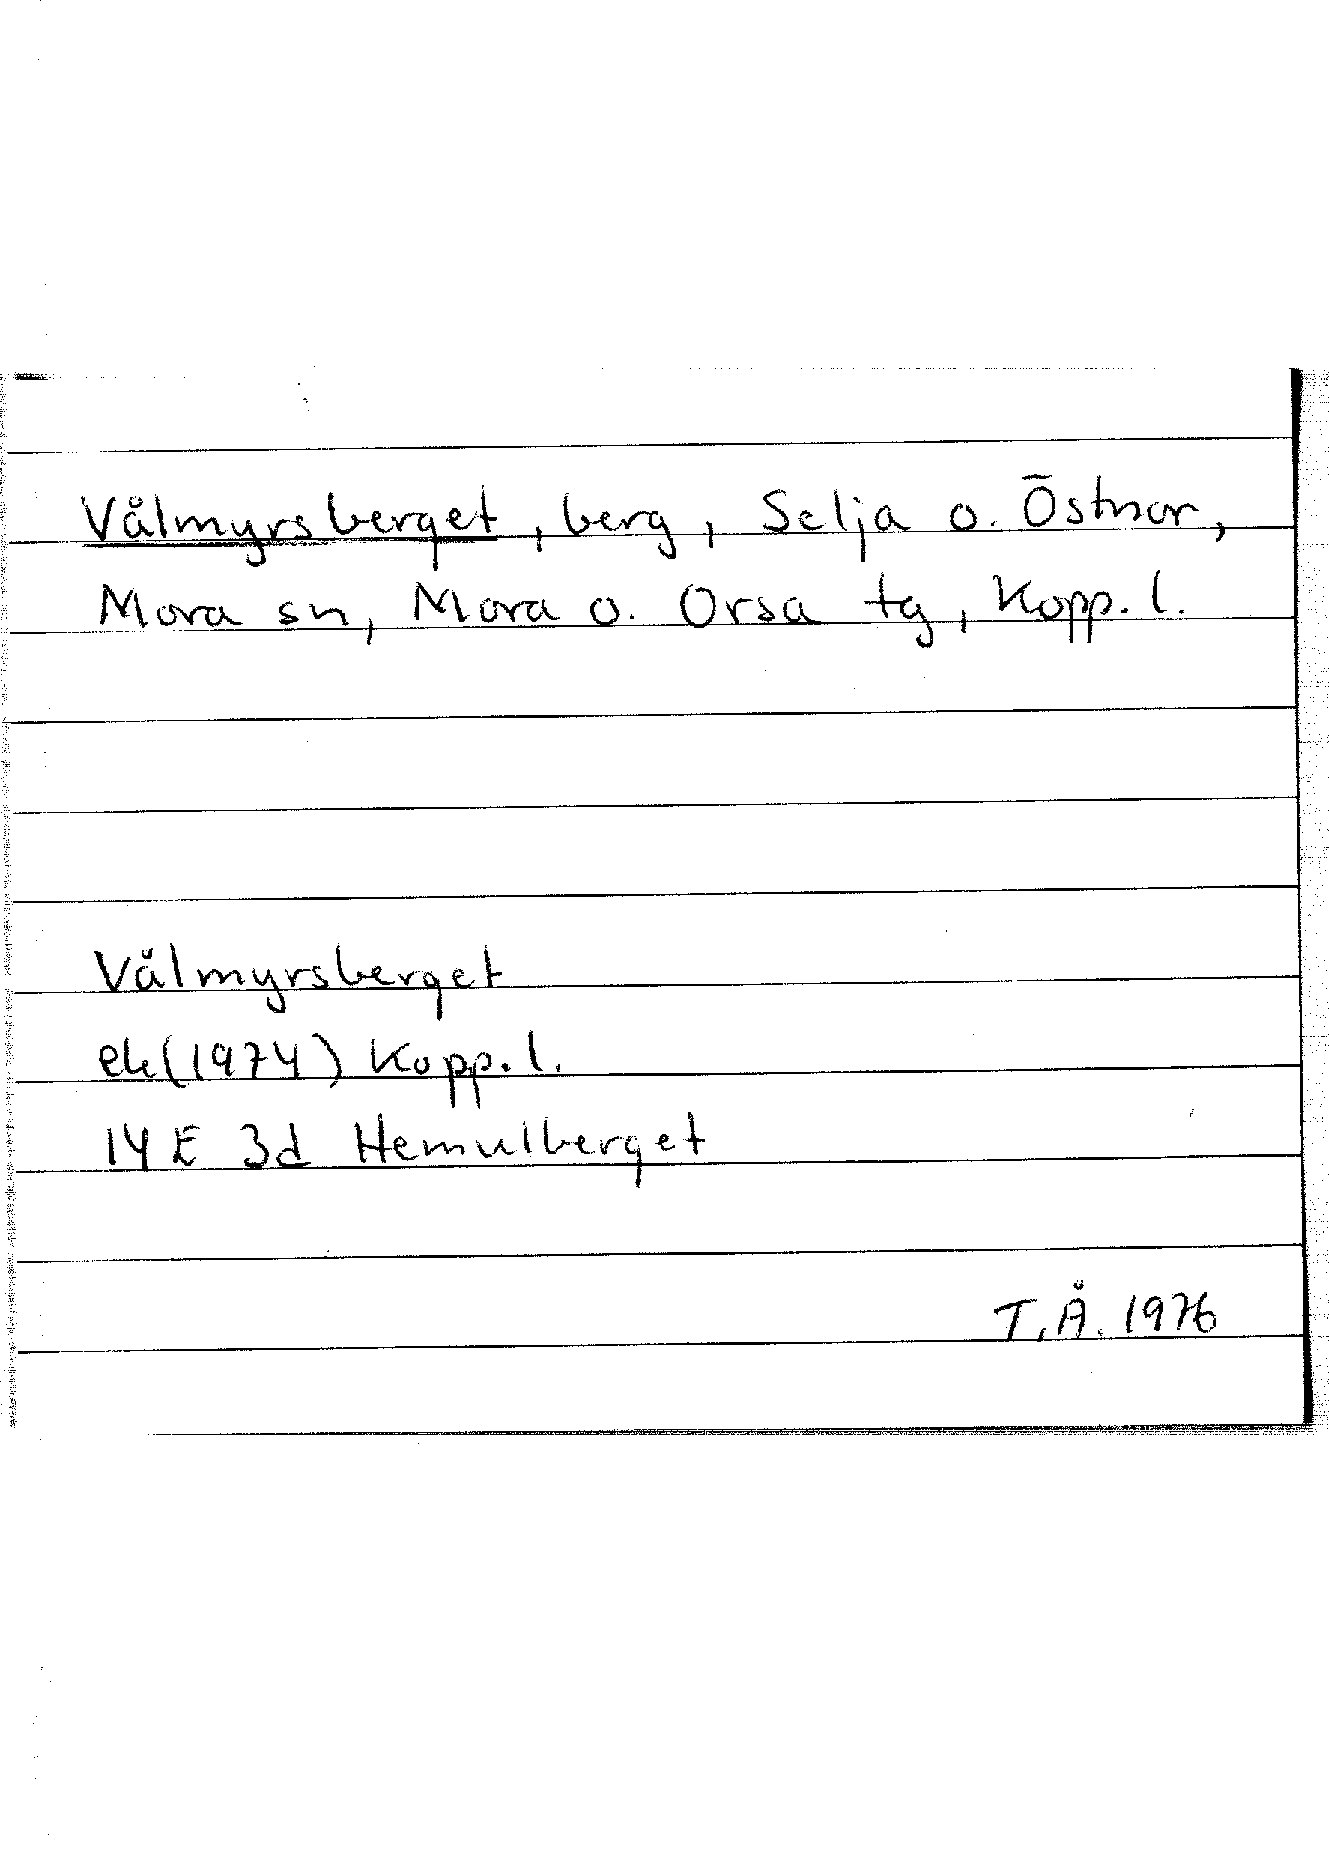 Vålmyrsberget, berg, Selja o. Östnor,
Mora sn, Mora o. Orsa tg, Kopp. l.
Vålmyrsberget
ek(1974) Kopp. l.
14 E 3d Hemulberget
T.Å. 1976